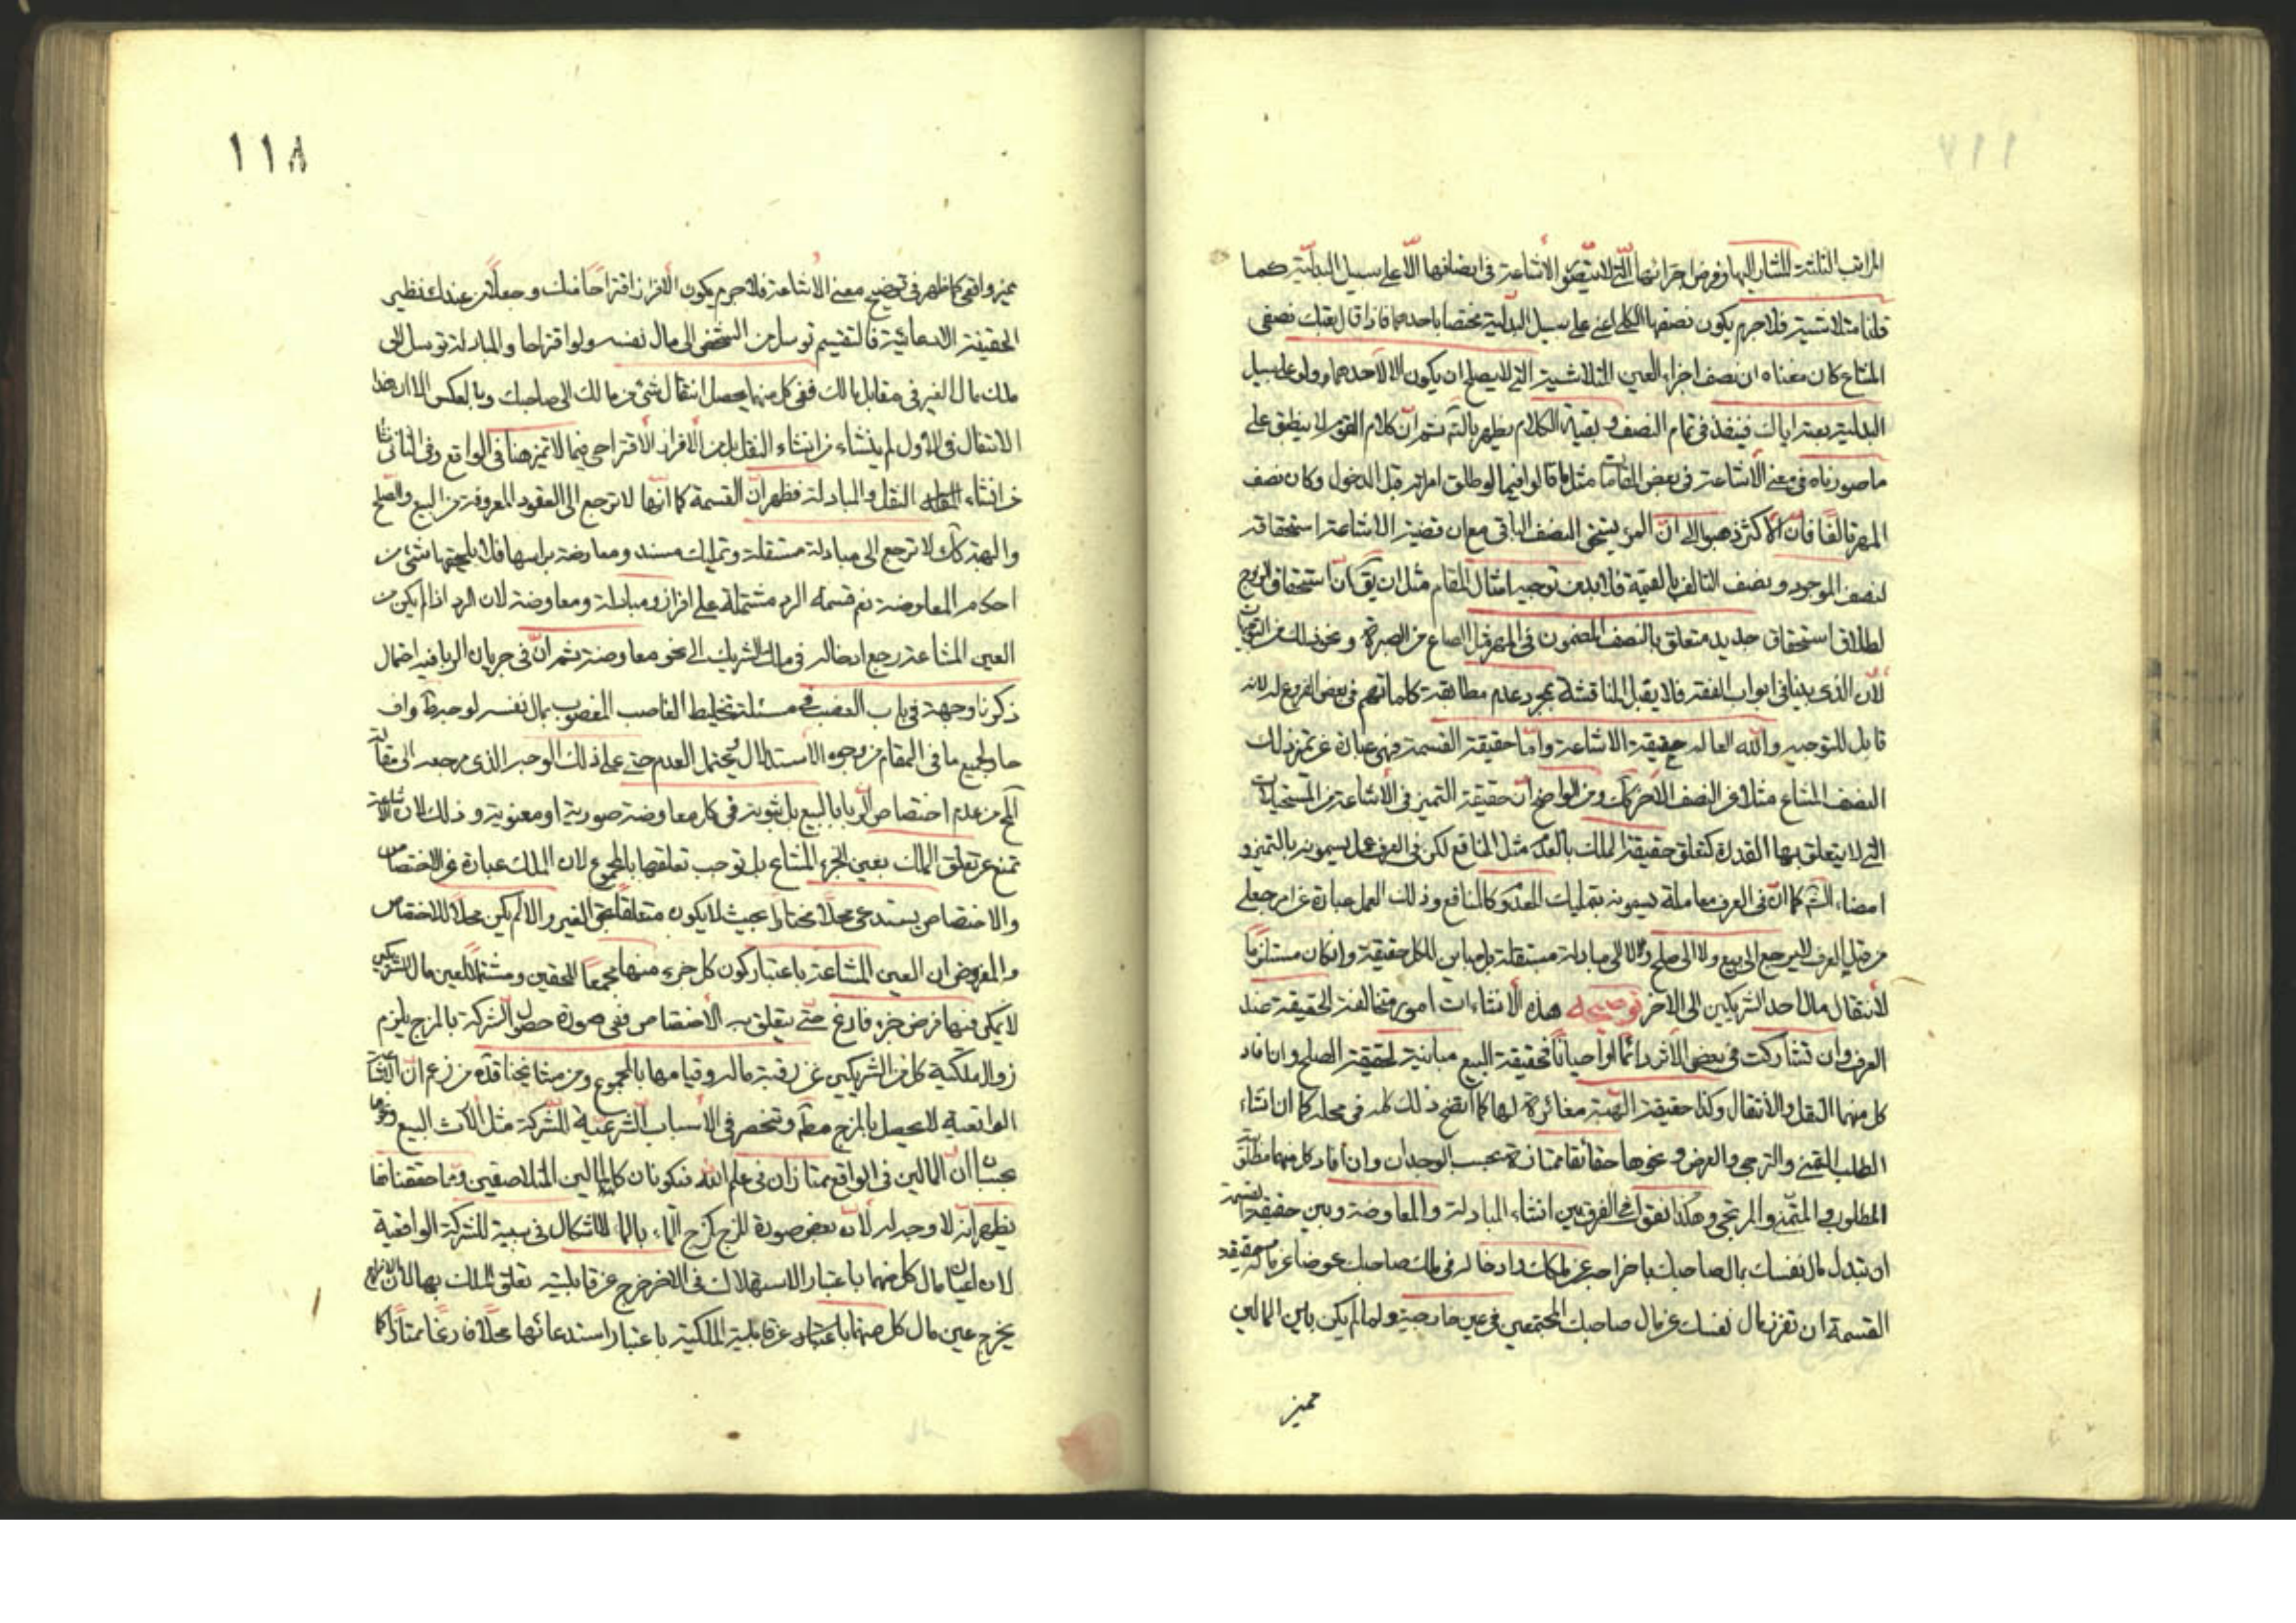 ١١٧
المراتب الثلثة المشار اليها وفرض اجزائها التى لا يتصور الاشاعة فى ايضافها الا على سبيل البدلية كما
قلنا مثلا شيئية فلا جرم يكون نصفها الكلى اعنى على سبيل البدلية مختصا باحدهما فاذا قال بعتك نصفى
المشاع كان معناه ان نصف اجزاء العين المتلاشية التى لا يصلح ان يكون الا لاحدهما ولو على سبيل
البدلية بعته اياك فينفذ فى تمام النصف وبقية الكلام يظهر بالتـ ثم ان كلام القوم لا ينطبق على
ما صورناه فى معنى الاشاعة فى بعض المقامات مثل ما قالوا فيما لو طلق امراته قبل الدخول وكان نصف
المهر تالفا فان الاكثر ذهبوا الى ان الزوج يستحق النصف الباقى مع ان قضية الاشاعة استحقاقه
لنصف الموجود ونصف التالف بالقيمة فلا بد من توجيه امثال المقام مثل ان يق ان استحقاق الزوج
لطلاق استحقاق جديد متعلق بالنصف المضمون فى المهر قبل الصاع من الصبرة ونحو ذلك من التوجيهات
لان الذى بينا فى ابواب الفقه فلا يقبل المناقشة بمجرد عدم مطابقة كلماتهم فى بعض الفروع له لانه
قابل للتوجيه والله العالم حقيقة الاشاعة واما حقيقة القسمة فهى عبارة عن تميز ذلك
النصف المشاع مثلا من النصف الاخر كك ومن الواضح ان حقيقة التميز فى الاشاعة من المستحيلات
التى لا يتعلق بها القدرة كتعلق حقيقة الملك بالعدم مثل المنافع لكن فى العرف عمل يسمونه بالتميز و
امضاء الشم كما ان فى العرف معاملة يسمونه بتمليك المعدوم كالمنافع وذلك العمل عبارة عن امر جعلى
من قبل العرف لا يرجع الى بيع ولا الى صلح ولا الى مبادلة مستقلة بل مباين للكل حقيقة وان كان مستلزما
لانتقال مال احد الشريكين الى الاخر توضيحه هذه الانشاءات امور متخالفة الحقيقة عند
العرف وان تشاركت فى بعض الاثر دائما او احيانا فحقيقة البيع مباينة لحقيقة الصلح وان افاد
كل منهما النقل والانتقال وكذا حقيقة الهبة مغائرة لها كما اتضح ذلك كله فى محله كما ان انشاء
الطلب التمنى والترجى والعرض ونحوها حقائقا ممتازة بحسب الوجدان وان افاد كل منهما مطلق
المطلوب والمتمنى والمرتجى وهكذا نقول فى الفرق بين انشاء المبادلة والمعاوضة وبين حقيقة القسمة
ان تبدل مال نفسك بمال صاحبك باخراجه عن ملكك وادخاله فى ملك صاحبك عوضا عن ماله وحقيقة
القسمة ان تفرز مال نفسك عن مال صاحبك المجتمعين فى عين خارجية ولما لم يكن بين المالين
مميز
١١٨
مميز واقعى كما ظهر فى توضيح معنى الاشاعة فلا جرم يكون الافراز اقتراحا منك وجعلا من عندك نظير
الحقيقة الادعائية فالتقسيم توسل من الشخص الى مال نفسه ولو اقتراحا والمبادلة توسل الى
ملك مال الغير فى مقابل مالك ففى كل منهما يحصل انتقال شئ من مالك الى صاحبك وبالعكس الا ان هذا
الانتقال فى الاول لم ينشاء من انشاء النقل بل من الافراز الاقتراحى فيما لا تميز هنا فى الواقع وفى الثانى نشا
من انشاء النقل والمبادلة فظهر ان القسمة كما انها لا ترجع الى العقود المعروفة من البيع والصلح
والهبة كك لا ترجع الى مبادلة مستقلة وتمليك مسند ومعاوضة براسها فلا يلحقها شئ من
احكام المعاوضة نعم قسمة الرد مشتملة على افراز ومبادلة ومعاوضة لان الرد اذا لم يكن من
العين المشاعة رجع ادخاله فى ملك الشريك الى نحو معاوضة ثم ان فى جريان الربا فيه احتمال
ذكرنا وجهه فى باب الغصب فى مسئلة تخليط الغاصب المغصوب بمال نفسه لو جبره واف
حاو لجميع ما فى المقام من وجوه الاستدلال ويحتمل العدم حتى على ذلك الوجه الذى مرجعه الى مقالة
آلح من عدم اختصاص الربا بالبيع بل ثبوته فى كل معاوضة صورية او معنوية وذلك لان الاشاعة
تمنع عن تعلق الملك بعين الجزء المشاع بل توجب تعلقها بالمجموع لان الملك عبارة عن الاختصاص
والاختصاص يستدعى محلا مختارا بحيث لا يكون متعلقا بحق الغير والا لم يكن محلا للاختصاص
والمفروض ان العين المشاعة باعتبار كون كل جزء منها مجمعا للحقين ومشتملا لعين مال الشريكين
لا يمكن فيها فرض جزء فارغ حتى يتعلق به الاختصاص ففى صورة حصول الشركة بالمزج يلزم
زوال ملكية كل من الشريكين عن رقبة ماله وقيامها بالمجموع ومن مشايخنا قده من زعم ان الاشاعة
الواقعية لا يحصل بالمزج مطم وتنحصر فى الاسباب الشرعية للشركة مثل الارث البيع ونحوهما
بحسبان ان المالين فى الواقع ممتازان فى علم الله فيكونان كالمالين المتلاصقين ومما حققنا هنا
يظهر انه لا وجه له لان بعض صورة المزج كمزج الماء بالماء لا اشكال فى سببية للشركة الواقعية
لان اعيان مال كل منهما باعتبار الاستهلاك فى الاخر خرج عن قابلية تعلق الملك بها لان الامتزاج
يخرج عين مال كل منهما باعتباره عن قابلية الملكية باعتبار استدعائها محلا فارغا ممتازا كما